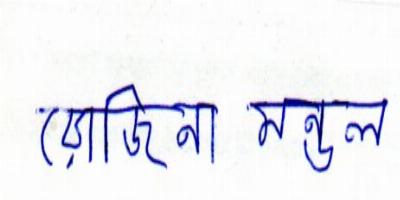 রোজিনা মন্ডল